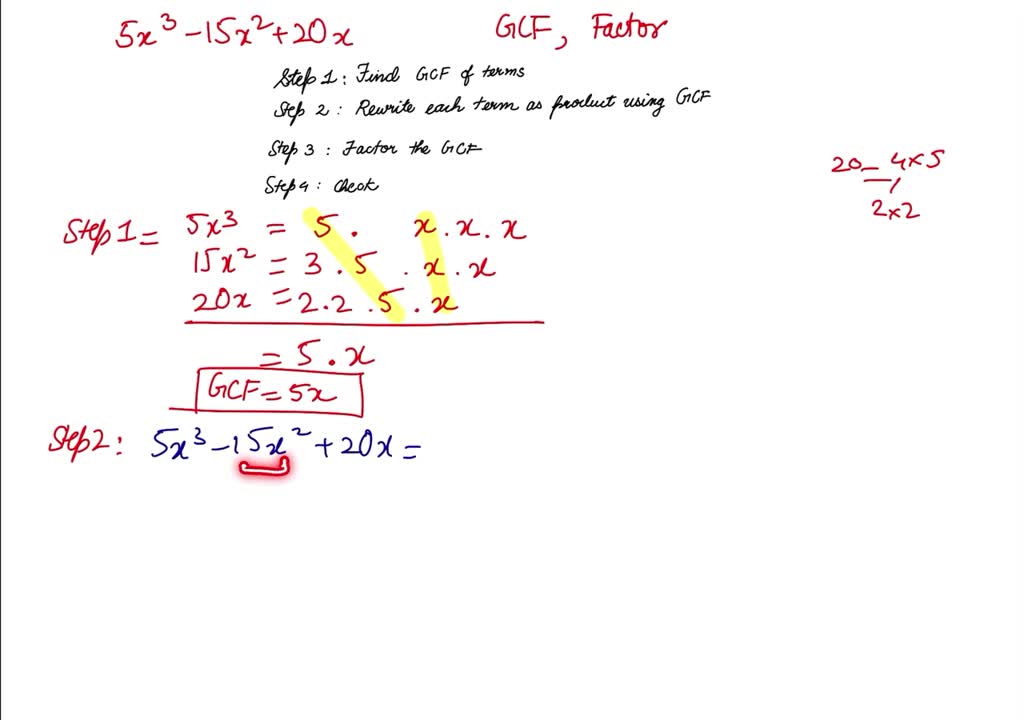 5x³ -15x² +20x GCF, Factor
Step 1: Find GCF of terms
Step 2: Rewrite each term as product using GCF
Step 3: Factor the GCF
Step 4: Check
20 - 4×5
2×2
Step 1 = 5x³ = 5 . x . x . x
15x² = 3 . 5 . x . x
20x = 2.2 . 5 . x
= 5 . x
GCF = 5x
Step 2: 5x³ -15x² +20x =